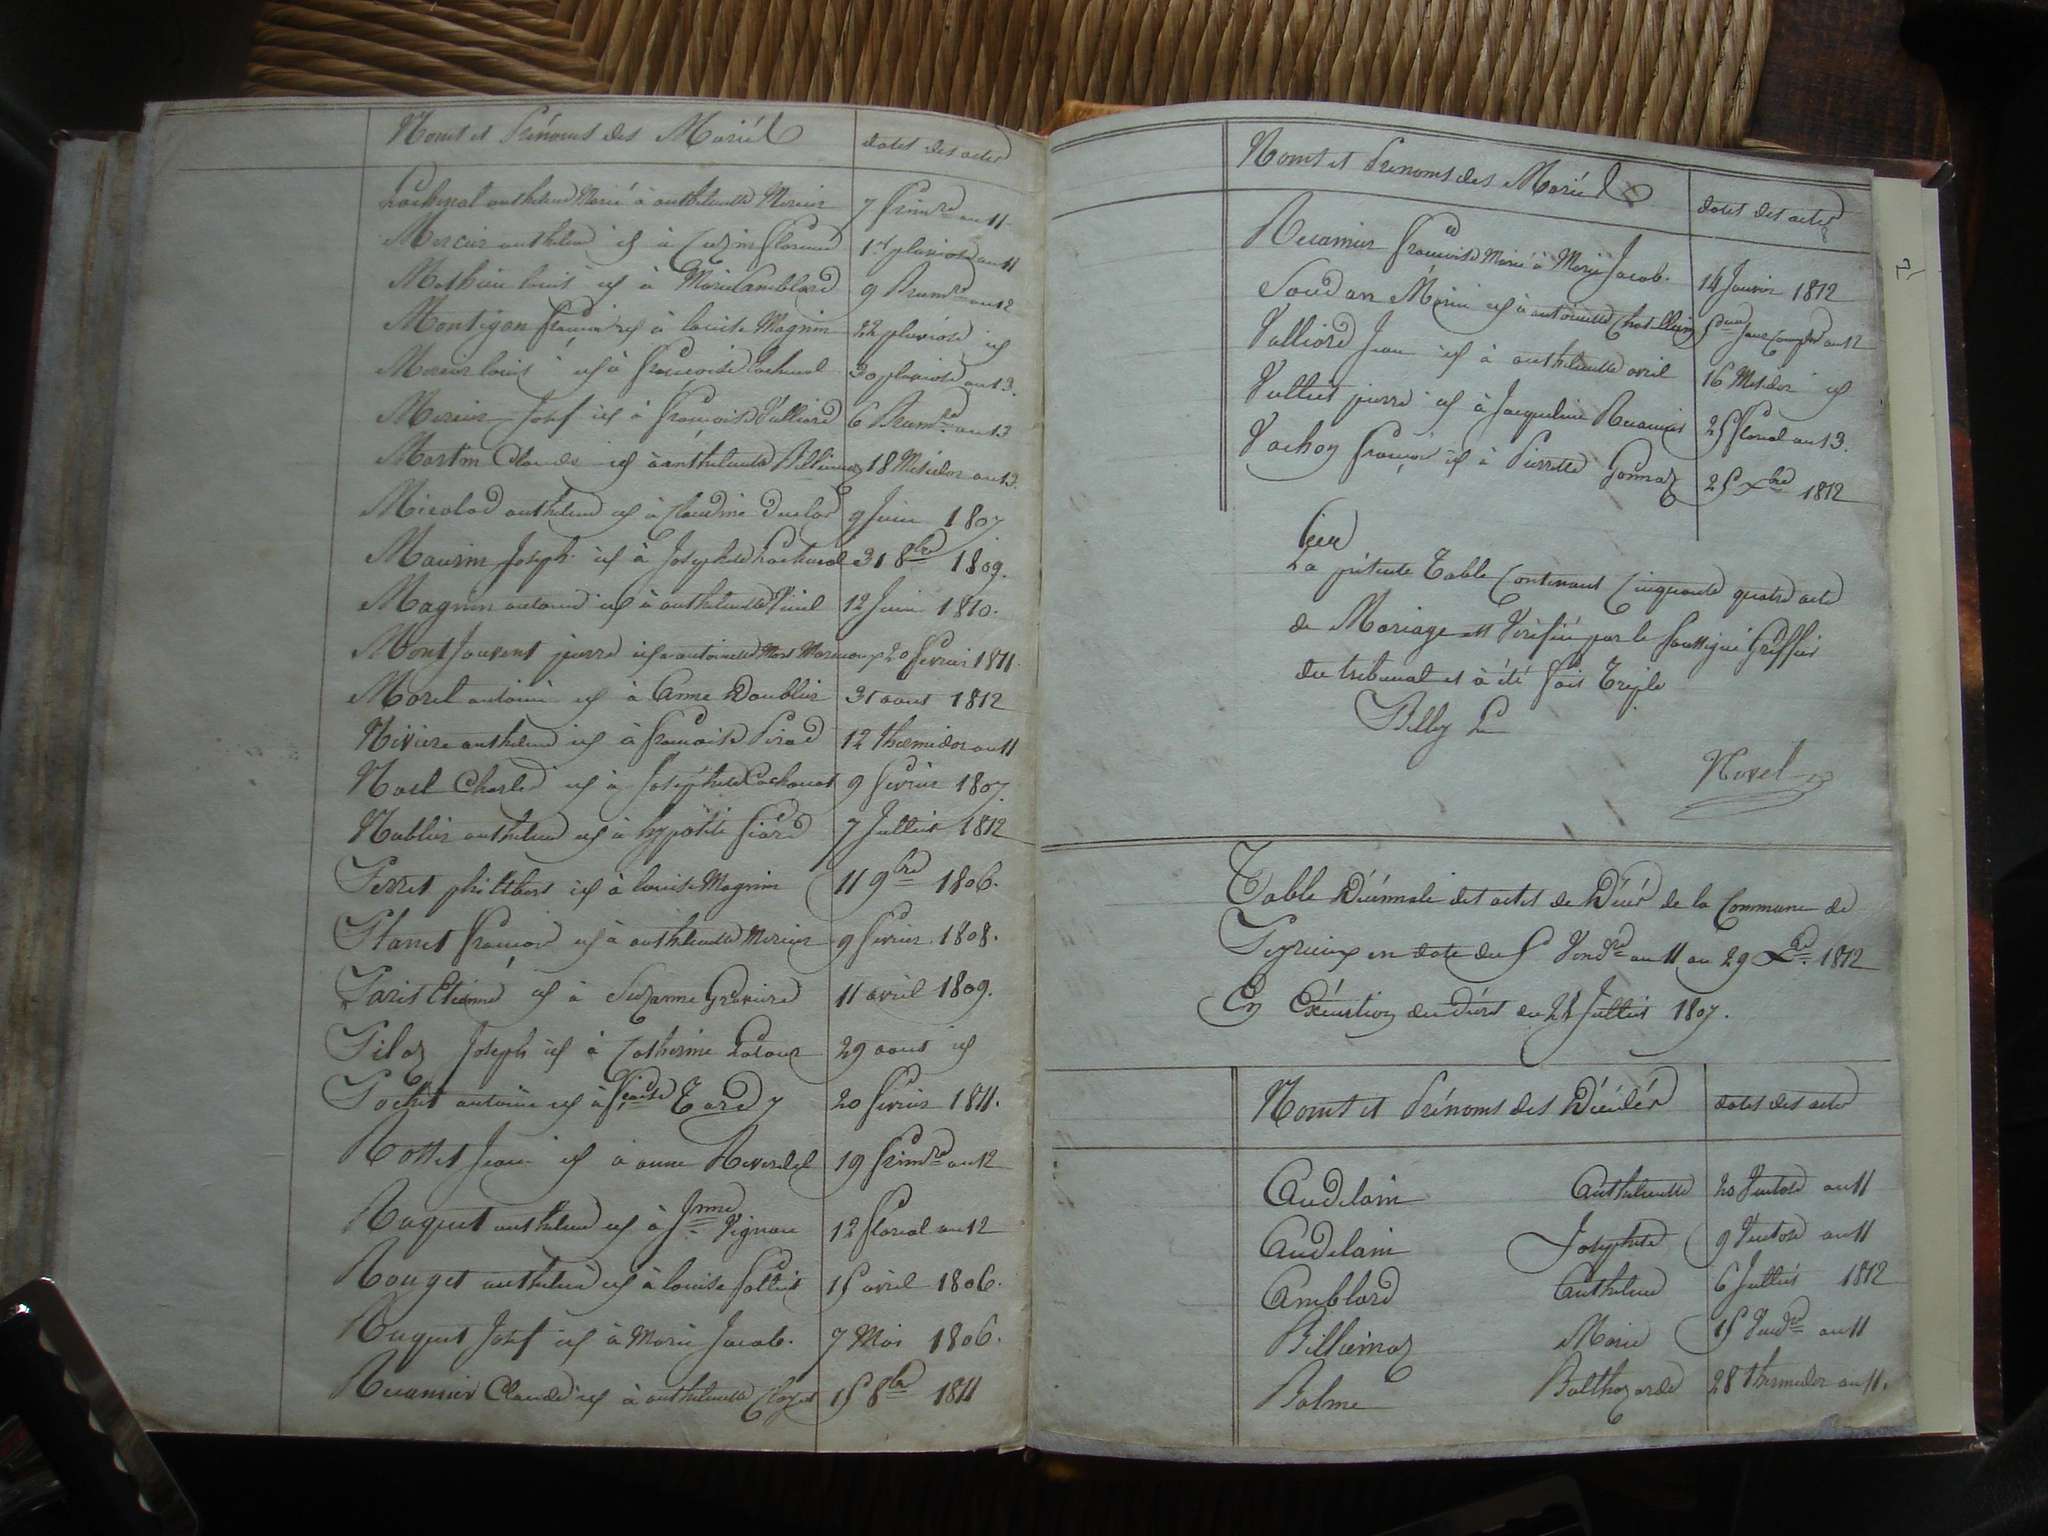 Noms et Prénoms des Mariés dates des actes
Lachenal anthelme Marié à anthelmette Mercier 7 frimre an 11
Mercier anthelme id à Suzin florine 1er pluviose an 11
Mathieu louis id à Marie amblard 9 Brumre an 12
Montigon françois id à louise Magnin 22 pluviose id
Mercier louis id à françoise Lachenal 30 pluviose an 13.
Mercier Josef id à françoise Vulliard 6 Brumre an 13
Martin Claude id à anthelmette Billiemaz 18 Messidor an 13.
Micolod anthelme id à Claudine Duclos 9 Juin 1807
Maurin Joseph id à Josephte Lachenal 31 8bre 1809.
Magnin antoine id à anthelmette 12 Juin 1810.
MontJouvent pierre id à antoinette Mont 20 fevrier 1811.
Morel antoine id à Anne Doublier 31 aout 1812
Nivière anthelme id à françoise Pirod 12 thermidor an 11
Noel Charle id à Joséphte Lachenal 9 fevrier 1807.
Nublier anthelme id à hypolite 7 Juillet 1812
Perret philibert id à louise Magnin 11 9bre 1806.
Planet françois id à anthelmette Mercier 9 fevrier 1808.
Paris Etienne id à Suzanne Gravière 11 avril 1809.
Piloz Joseph id à Catherine 29 aout id
Pochet antoine id à fçoise Tardy 20 fevrier 1811.
Rosset Jean id à anne Reverdel 19 frimre an 12
Roquet anthelme id à Jnne Vignan 12 floréal an 12
Rouget anthelme id à louise 15 avril 1806.
Ruquet Josef id à Marie Jacob. 7 Mai 1806.
Recamier Claude id à anthelmette 15 8bre 1811
Noms et Prénoms des Mariés dates des actes
Recamier françois Marié à Marie Jacob. 14 Janvier 1812
Soudan Marie id à antoinette Chatillon 5 jour complre an 12
Vulliard Jean id à anthelmette avril 16 Messidor id
Vulliet pierre id à Jacqueline Recamier 25 floréal an 13.
Vachon françois id à Pierrette Gonnaz 25 Xbre 1812
La présente Table Contenant Cinquante quatre acte
de Mariage est Vérifiée par le soussigné Greffier
du tribunal et à été fait Triple
Billy
Novel
Table Décennale des actes de Décès de la Commune de
Peyrieux en date du 5 Vendre an 11 au 29 Xbre 1812
En Exécution du Décret du 21 Juillet 1807.
Noms et Prénoms des Décédés dates des actes
Audelain Anthelmette 20 Ventose an 11
Audelain Josephte 9 Ventose an 11
Amblard Anthelme 6 Juillet 1812
Billiemaz Marie 15 Vendre an 11
Balme Balthazarde 28 thermidor an 11.